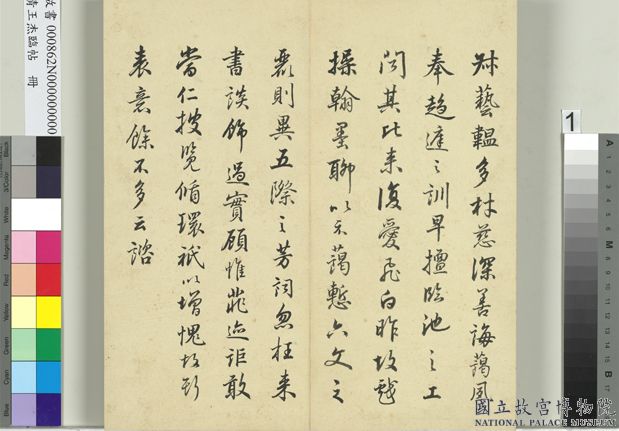 藝韞多材慈深善誨藹夙
奉趨庭之訓早擅臨池之工
聞其比來復愛飛白昨故戲
操翰墨聊以示藹慙六文之
麗則異五際之芳詞忽枉來
書談飾過實顧惟菲迹詎敢
當仁披覽循環祇以增愧故
表意餘不多云諮
故書 000862N000000000
清王杰臨帖 冊
1
國立故宮博物院
NATIONAL PALACE MUSEUM
Black
3/Color
White
Magenta
Red
Yellow
Green
Cyan
Blue
A
M
B